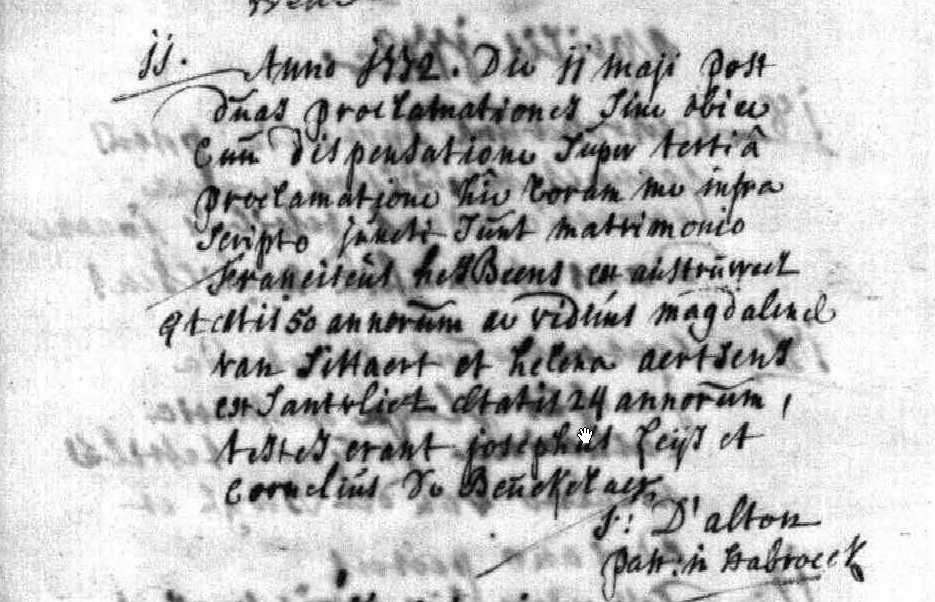 11. Anno 1772. Die 11 maji post
duas proclamationes sine obice
Cum dispensatione super tertiâ
proclamatione hîc coram me infra
scripto juncti sunt matrimonio
Franciscus hesBeens ex austruweel
aetatis 50 annorum ac viduus magdalenae
van Sittaert et helena aertsens
ex Santvliet aetatis 24 annorum,
testes erant josephus Leijs et
Cornelius De Beuckelaer
D'alton
past: in stabroeck